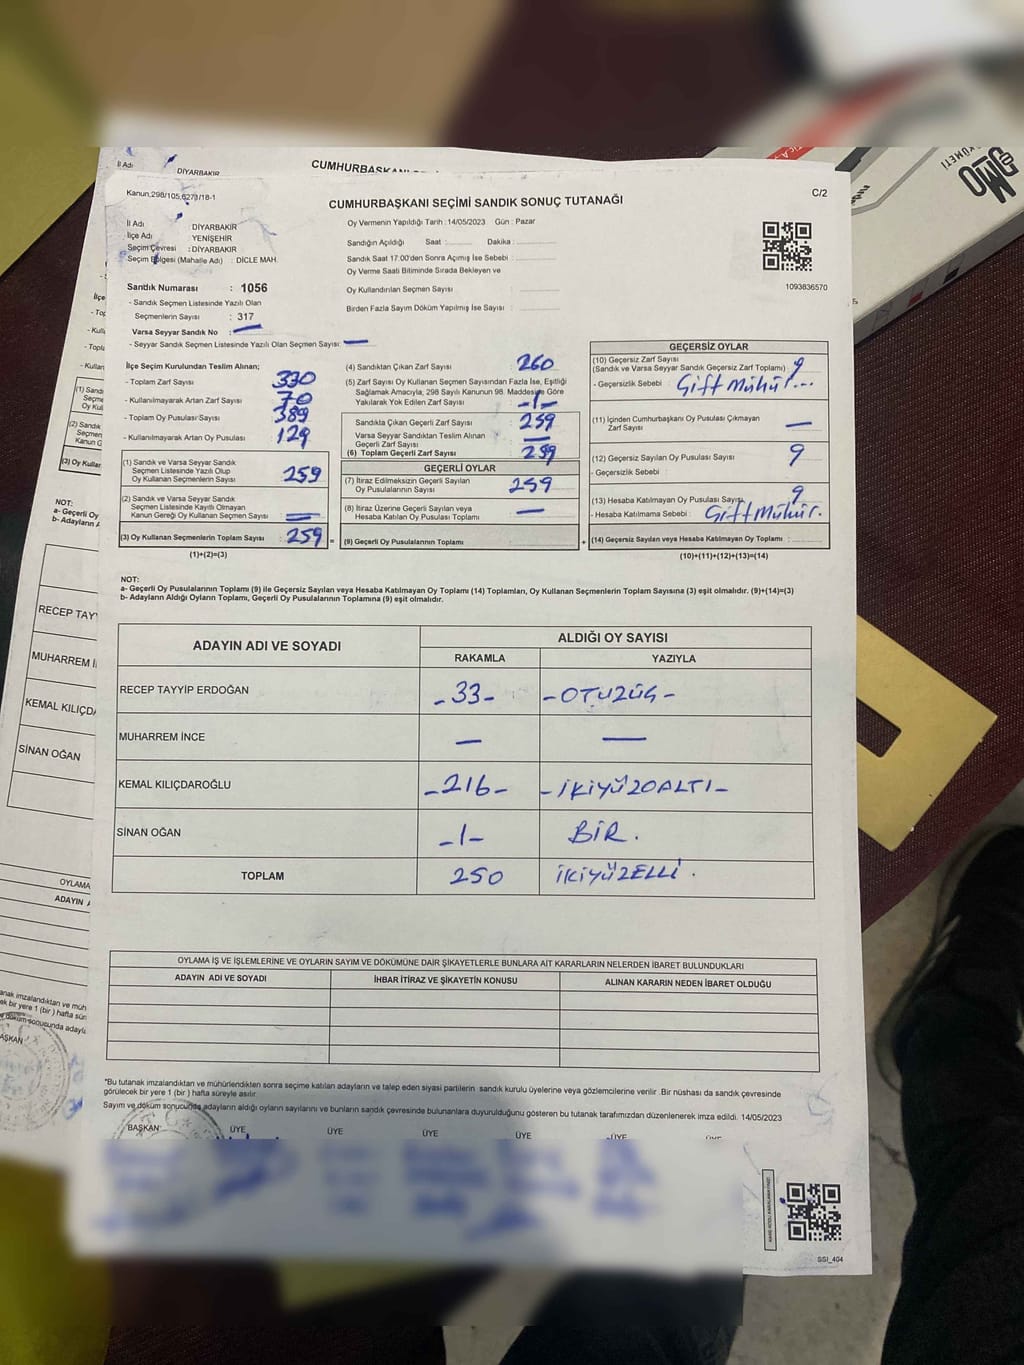 İl Adı
DİYARBAKIR
Kanun,298/105,6271/18-1
CUMHURBAŞKANI SEÇİMİ SANDIK SONUÇ TUTANAĞI
C/2
Oy Vermenin Yapıldığı Tarih : 14/05/2023 Gün : Pazar
İl Adı : DİYARBAKIR
İlçe Adı : YENİŞEHİR
Seçim Çevresi : DİYARBAKIR
Seçim Bölgesi (Mahalle Adı) : DİCLE MAH.
Sandığın Açıldığı Saat : Dakika :
Sandık Saat 17.00'den Sonra Açımış İse Sebebi :
Oy Verme Saati Bitiminde Sırada Bekleyen ve
Oy Kullandırılan Seçmen Sayısı :
Birden Fazla Sayım Döküm Yapılmış İse Sayısı :
1093836570
Sandık Numarası : 1056
- Sandık Seçmen Listesinde Yazılı Olan
Seçmenlerin Sayısı : 317
Varsa Seyyar Sandık No : —
- Seyyar Sandık Seçmen Listesinde Yazılı Olan Seçmen Sayısı: —
İlçe Seçim Kurulundan Teslim Alınan;
- Toplam Zarf Sayısı : 330
- Kullanılmayarak Artan Zarf Sayısı : 70
- Toplam Oy Pusulası Sayısı : 389
- Kullanılmayarak Artan Oy Pusulası : 129
(1) Sandık ve Varsa Seyyar Sandık
Seçmen Listesinde Yazılı Olup
Oy Kullanan Seçmenlerin Sayısı : 259
(2) Sandık ve Varsa Seyyar Sandık
Seçmen Listesinde Kayıtlı Olmayan
Kanun Gereği Oy Kullanan Seçmen Sayısı : —
(3) Oy Kullanan Seçmenlerin Toplam Sayısı : 259 =
(1)+(2)=(3)
(4) Sandıktan Çıkan Zarf Sayısı : 260
(5) Zarf Sayısı Oy Kullanan Seçmen Sayısından Fazla İse, Eşitliği
Sağlamak Amacıyla, 298 Sayılı Kanunun 98. Maddesine Göre
Yakılarak Yok Edilen Zarf Sayısı : -1-
Sandıkta Çıkan Geçerli Zarf Sayısı : 259
Varsa Seyyar Sandıktan Teslim Alınan
Geçerli Zarf Sayısı : —
(6) Toplam Geçerli Zarf Sayısı : 259
GEÇERLİ OYLAR
(7) İtiraz Edilmeksizin Geçerli Sayılan
Oy Pusulalarının Sayısı : 259
(8) İtiraz Üzerine Geçerli Sayılan veya
Hesaba Katılan Oy Pusulası Toplamı : —
(9) Geçerli Oy Pusulalarının Toplamı +
GEÇERSİZ OYLAR
(10) Geçersiz Zarf Sayısı
(Sandık ve Varsa Seyyar Sandık Geçersiz Zarf Toplamı) : 9
- Geçersizlik Sebebi : Gift mühür...
(11) İçinden Cumhurbaşkanı Oy Pusulası Çıkmayan
Zarf Sayısı : —
(12) Geçersiz Sayılan Oy Pusulası Sayısı : 9
- Geçersizlik Sebebi :
(13) Hesaba Katılmayan Oy Pusulası Sayısı 9
- Hesaba Katılmama Sebebi : Gift Mühür.
(14) Geçersiz Sayılan veya Hesaba Katılmayan Oy Toplamı :
(10)+(11)+(12)+(13)=(14)
NOT:
a- Geçerli Oy Pusulalarının Toplamı (9) ile Geçersiz Sayılan veya Hesaba Katılmayan Oy Toplamı (14) Toplamları, Oy Kullanan Seçmenlerin Toplam Sayısına (3) eşit olmalıdır. (9)+(14)=(3)
b- Adayların Aldığı Oyların Toplamı, Geçerli Oy Pusulalarının Toplamına (9) eşit olmalıdır.
ADAYIN ADI VE SOYADI
ALDIĞI OY SAYISI
RAKAMLA YAZIYLA
RECEP TAYYİP ERDOĞAN -33- -OTUZÜÇ-
MUHARREM İNCE — —
KEMAL KILIÇDAROĞLU -216- -İKİYÜZOALTI-
SİNAN OĞAN -1- BİR.
TOPLAM 250 İKİYÜZELLİ.
OYLAMA İŞ VE İŞLEMLERİNE VE OYLARIN SAYIM VE DÖKÜMÜNE DAİR ŞİKAYETLERLE BUNLARA AİT KARARLARIN NELERDEN İBARET BULUNDUKLARI
ADAYIN ADI VE SOYADI İHBAR İTİRAZ VE ŞİKAYETİN KONUSU ALINAN KARARIN NEDEN İBARET OLDUĞU
*Bu tutanak imzalandıktan ve mühürlendikten sonra seçime katılan adayların ve talep eden siyasi partilerin sandık kurulu üyelerine veya gözlemcilerine verilir. Bir nüshası da sandık çevresinde
görülecek bir yere 1 (bir) hafta süreyle asılır.
Sayım ve döküm sonucunda adayların aldığı oyların sayılarını ve bunların sandık çevresinde bulunanlara duyurulduğunu gösteren bu tutanak tarafımızdan düzenlenerek imza edildi. 14/05/2023
BAŞKAN ÜYE ÜYE ÜYE ÜYE ÜYE ÜYE
SSI_404